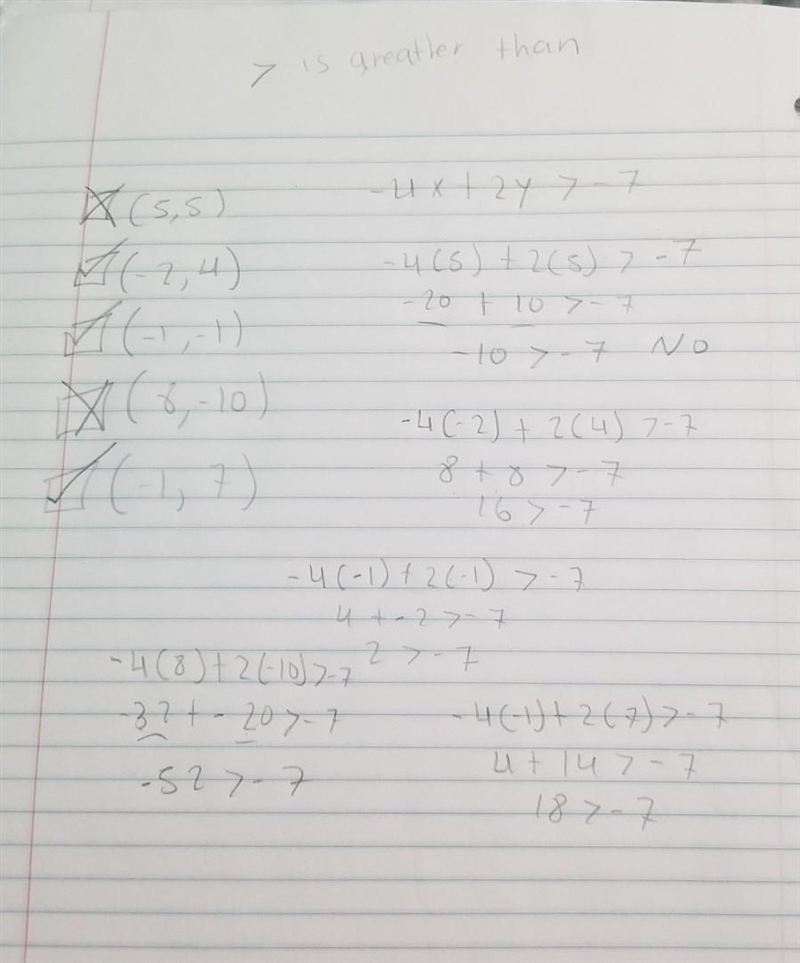 > is greatler than
(5,5)
(-2,4)
(-1,-1)
(8,-10)
(-1, 7)
-4x+2y > -7
-4(5) +2(5) > -7
-20 + 10 > -7
-10 > -7 NO
-4(-2) + 2(4) > -7
8 + 8 > -7
16 > -7
-4(-1)+2(-1) > -7
4 + -2 > -7
2 > -7
-4(8)+2(-10)>-7
-32+ -20>-7
-52 > -7
-4(-1)+2(7)>-7
4+14 > -7
18 > -7